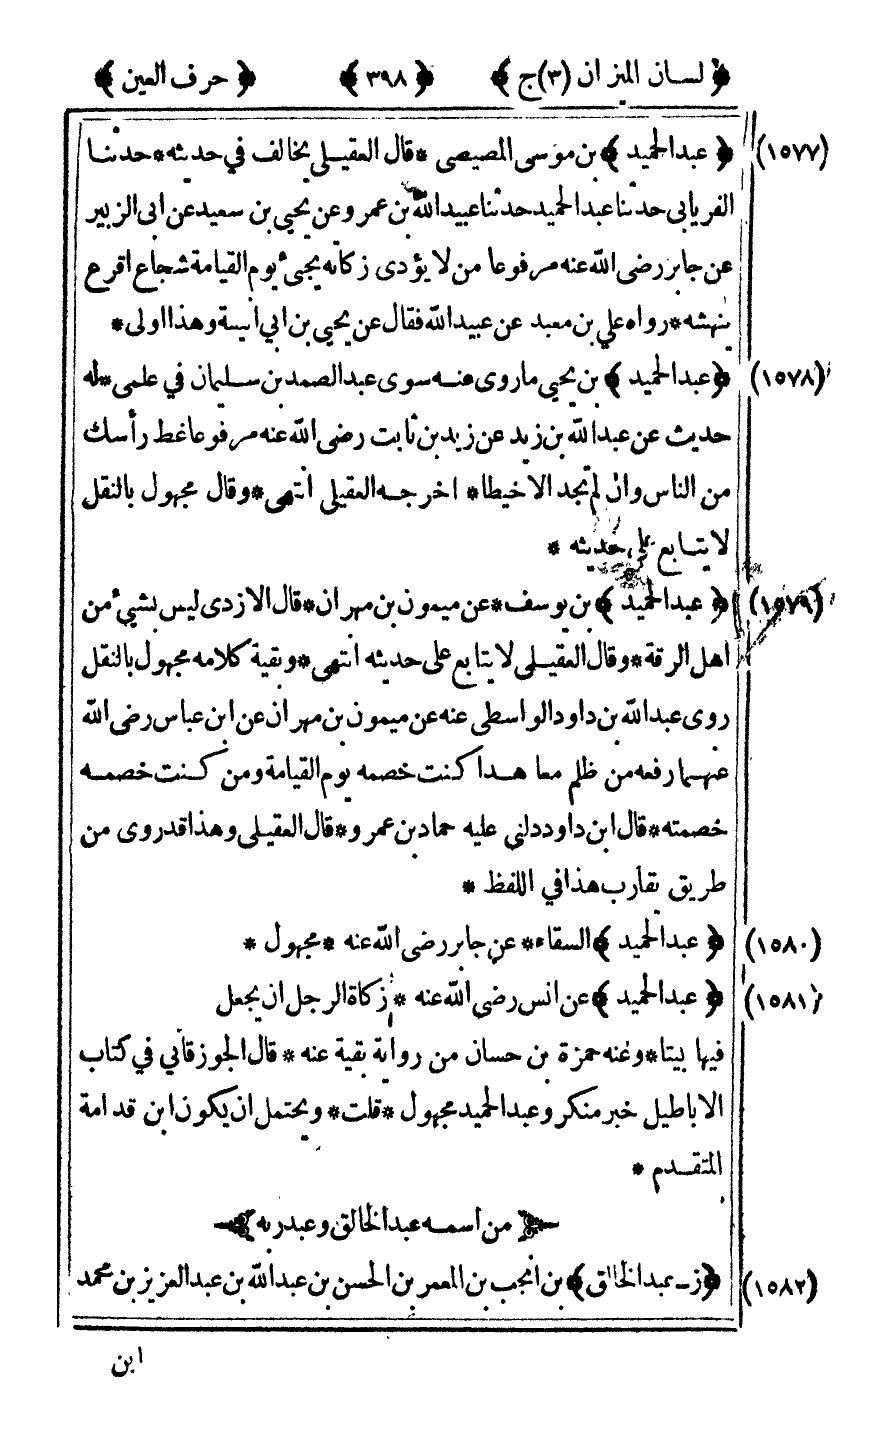 ﴿ لسان الميزان (٣) ج ﴾ ﴿ ٣٩٨ ﴾ ﴿ حرف العين ﴾
(١٥٧٧) ﴿ عبد الحميد ﴾ بن موسى المصيصى * قال العقيلى يخالف في حديثه * حدثنا
الفريابى حدثنا عبد الحميد حدثنا عبيد الله بن عمرو عن يحيى بن سعيد عن ابى الزبير
عن جابر رضى الله عنه مرفوعا من لا يؤدى زكاته يجئ يوم القيامة شجاع اقرع
ينهشه * رواه علي بن معبد عن عبيد الله فقال عن يحيى بن ابي انيسة وهذا اولى *
(١٥٧٨) ﴿ عبد الحميد ﴾ بن يحيى ما روى عنه سوى عبد الصمد بن سليمان في علمى * له
حديث عن عبد الله بن زيد عن زيد بن ثابت رضى الله عنه مرفوعا غط رأسك
من الناس وان لم تجد الا خيطا * اخرجه العقيلى انتهى * وقال مجهول بالنقل
لا يتابع على حديثه *
(١٥٧٩) ﴿ عبد الحميد ﴾ بن يوسف * عن ميمون بن مهران * قال الازدى ليس بشيئ من
اهل الرقة * وقال العقيلى لا يتابع على حديثه انتهى * وبقية كلامه مجهول بالنقل
روى عبد الله بن داود الواسطى عنه عن ميمون بن مهران عن ابن عباس رضى الله
عنهما رفعه من ظلم معاهدا كنت خصمه يوم القيامة ومن كنت خصمه
خصمته * قال ابن داود دلني عليه حماد بن عمرو * قال العقيلى وهذا قد روى من
طريق تقارب هذا في اللفظ *
(١٥٨٠) ﴿ عبد الحميد ﴾ السقاء * عن جابر رضى الله عنه * مجهول *
(١٥٨١) ﴿ عبد الحميد ﴾ عن انس رضى الله عنه * زكاة الرجل ان يجعل
فيها بيتا * وعنه حمزة بن حسان من رواية بقية عنه * قال الجوزقاني في كتاب
الاباطيل خبر منكر وعبد الحميد مجهول * قلت * ويحتمل ان يكون ابن قدامة
المتقدم *
من اسمه عبد الخالق وعبد ربه
(١٥٨٢) ﴿ ز - عبد الخالق ﴾ بن انجب بن المعمر بن الحسن بن عبد الله بن عبد العزيز بن محمد
ابن